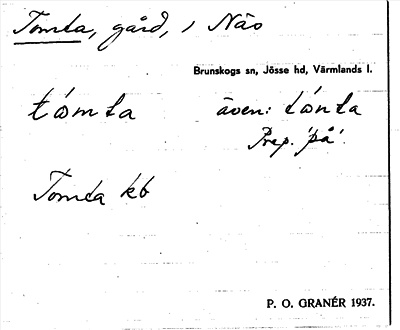 Tomta, gård, i Näs
Brunskogs sn, Jösse hd, Värmlands l.
tómta även: tónta
Prep. 'på'.
Tomta kb
P. O. GRANÉR 1937.